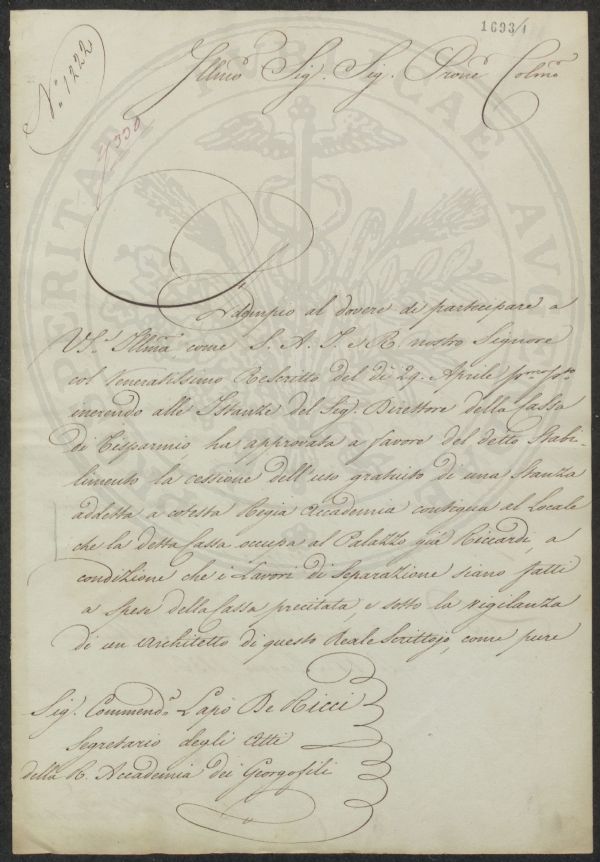 1693/1
N.o 1222
Illmo Sig. Sig. Prone Colmo
Adempio al dovere di partecipare a
VS. Illma come S. A. I. e R. nostro Signore
col Veneratissimo Rescritto del dì 29. Aprile
inerendo alle Istanze del Sig. Direttore della Cassa
di Risparmio, ha approvata a favore del detto Stabi-
limento la cessione dell'uso gratuito di una Stanza
addetta a cotesta Regia Accademia contigua al Locale
che la detta Cassa occupa al Palazzo già Riccardi, a
condizione che i Lavori di Separazione siano fatti
a spese della Cassa precitata, e sotto la vigilanza
di un Architetto di questo Reale Scrittojo, come pure
Sig. Commendr. Lapo De Ricci
Segretario degli Atti
della R. Accademia dei Georgofili
PROSPERITATI PUBLICAE AUGENDAE